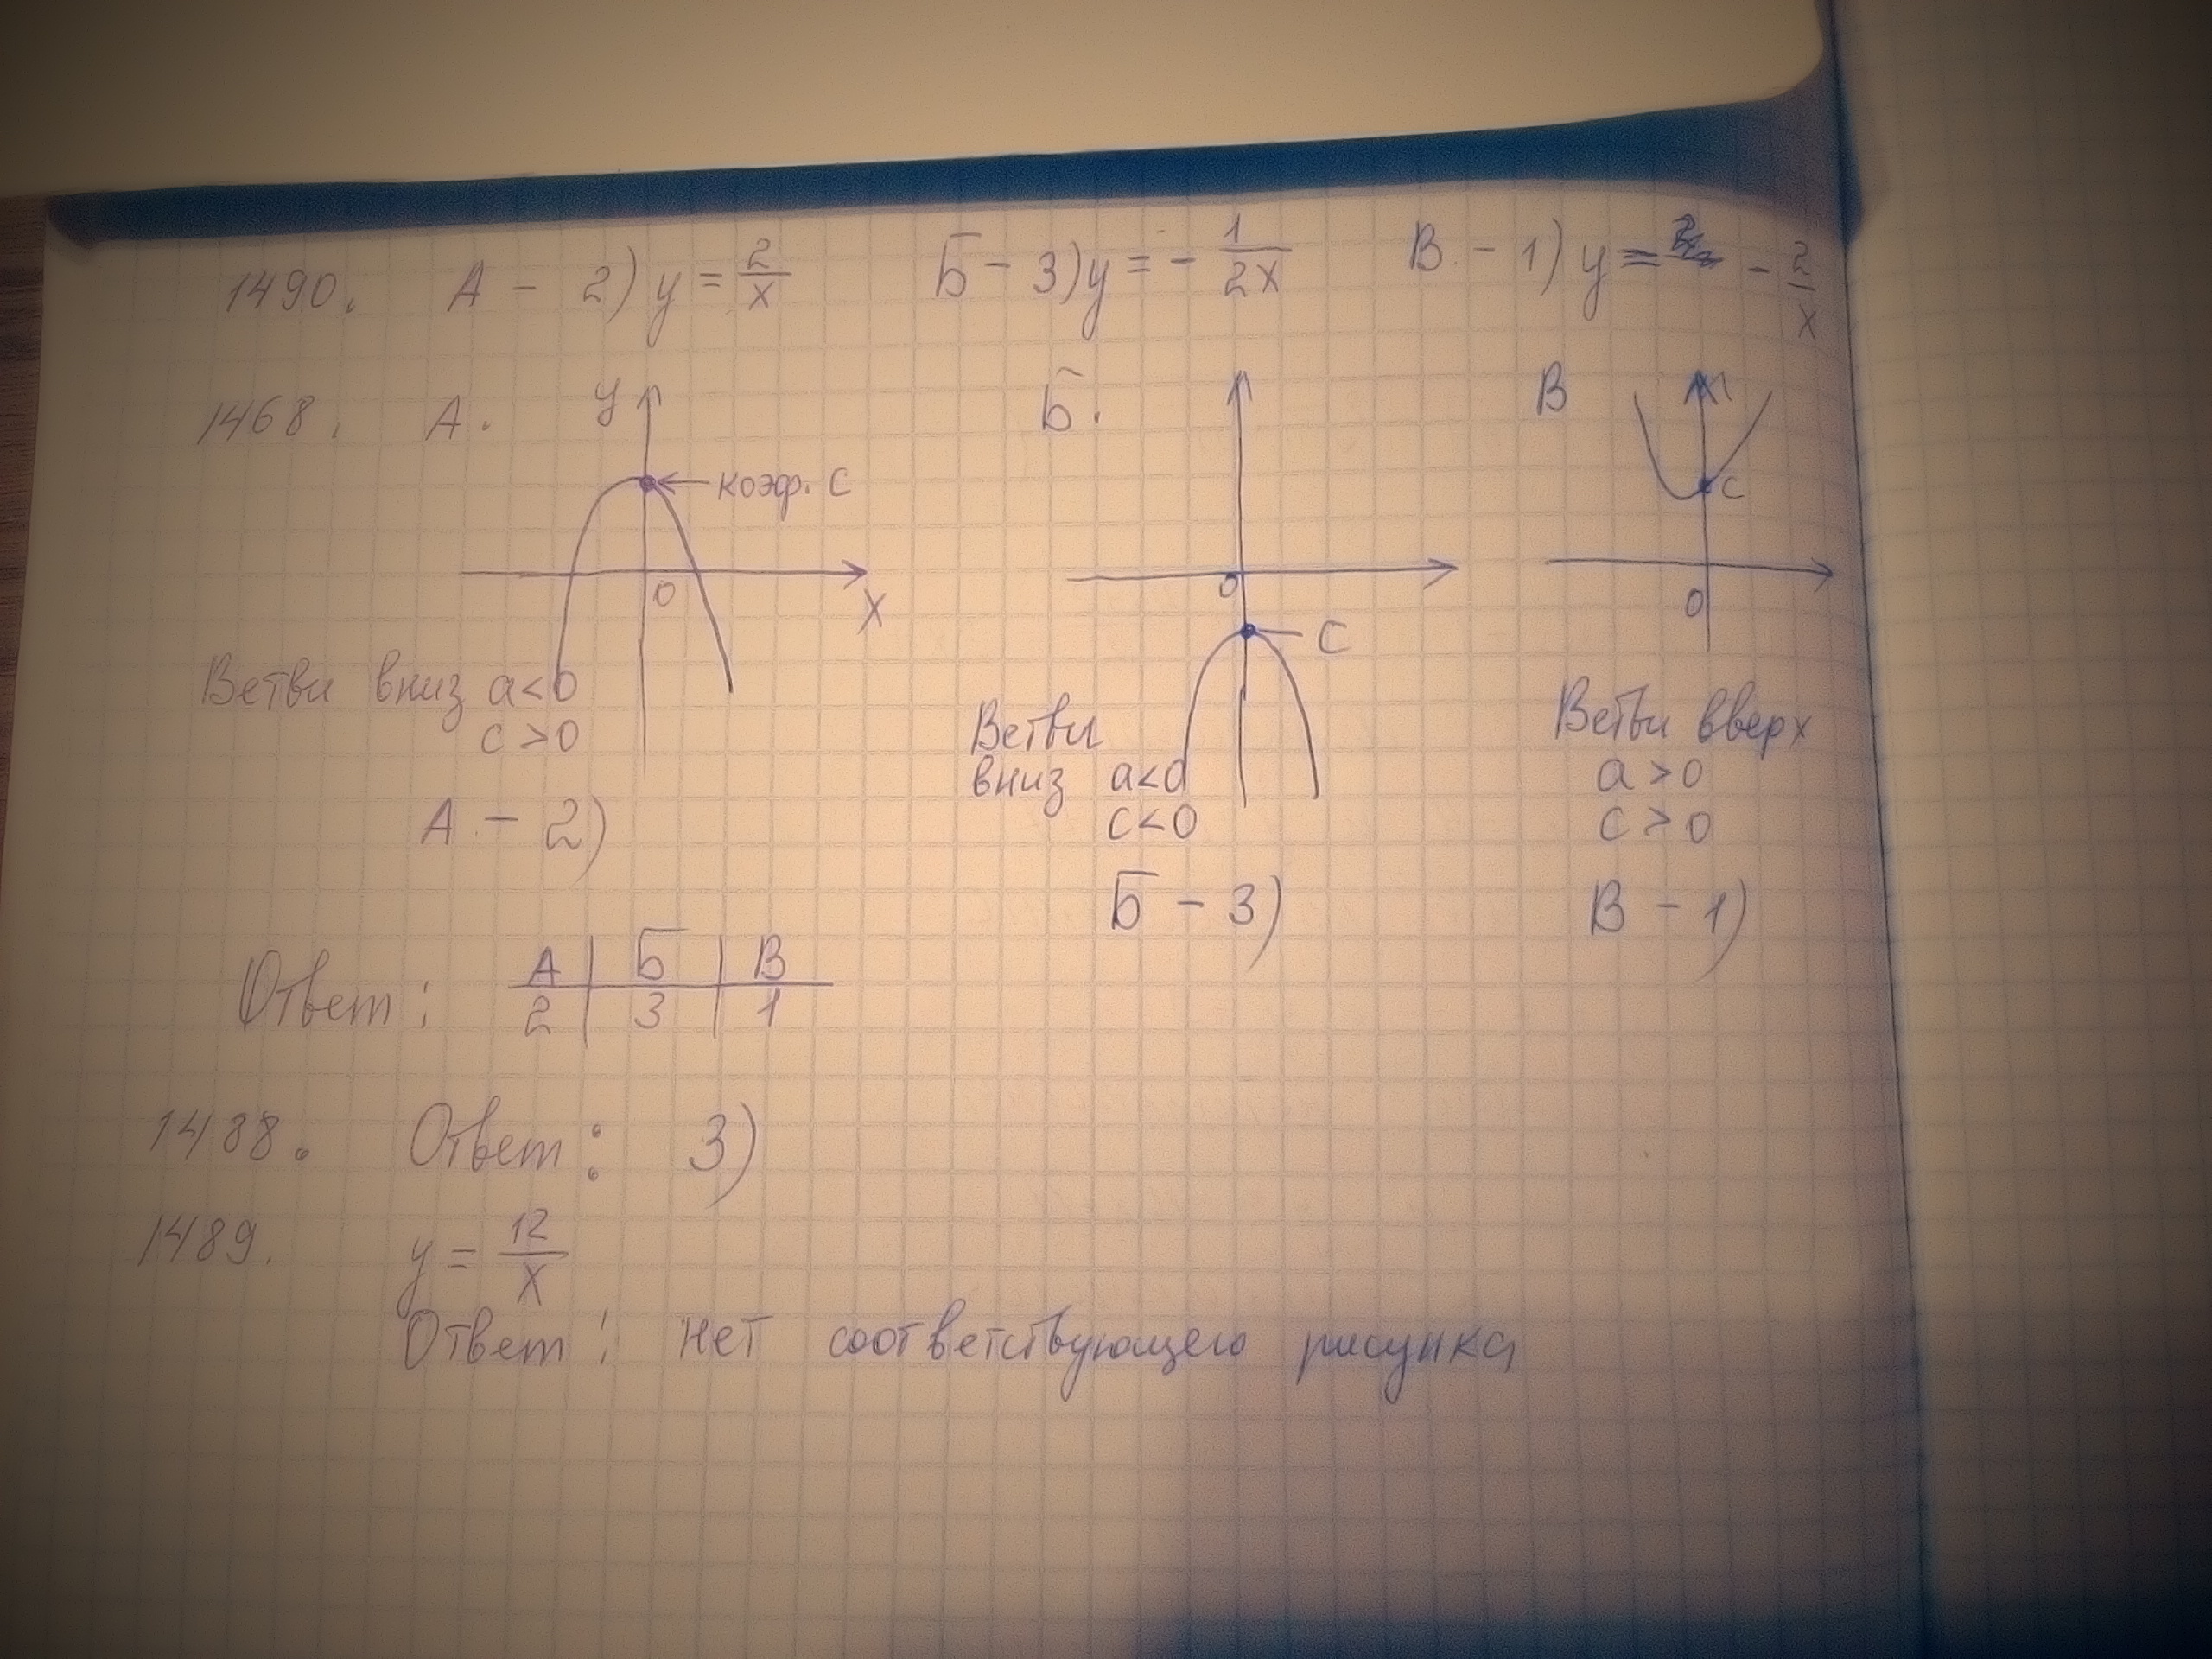 1490. А - 2) y = 2/x Б - 3) y = - 1/2x В - 1) y = - 2/x
1468. А. y Б. В
коэф. с
с
0
x
0
с
0
Ветви вниз a<0
c>0
А - 2)
Ветви
вниз a<0
c<0
Б - 3)
Ветви вверх
a>0
c>0
В - 1)
Ответ: А | Б | В
2 | 3 | 1
1488. Ответ: 3)
1489. y = 12/x
Ответ: нет соответствующего рисунка